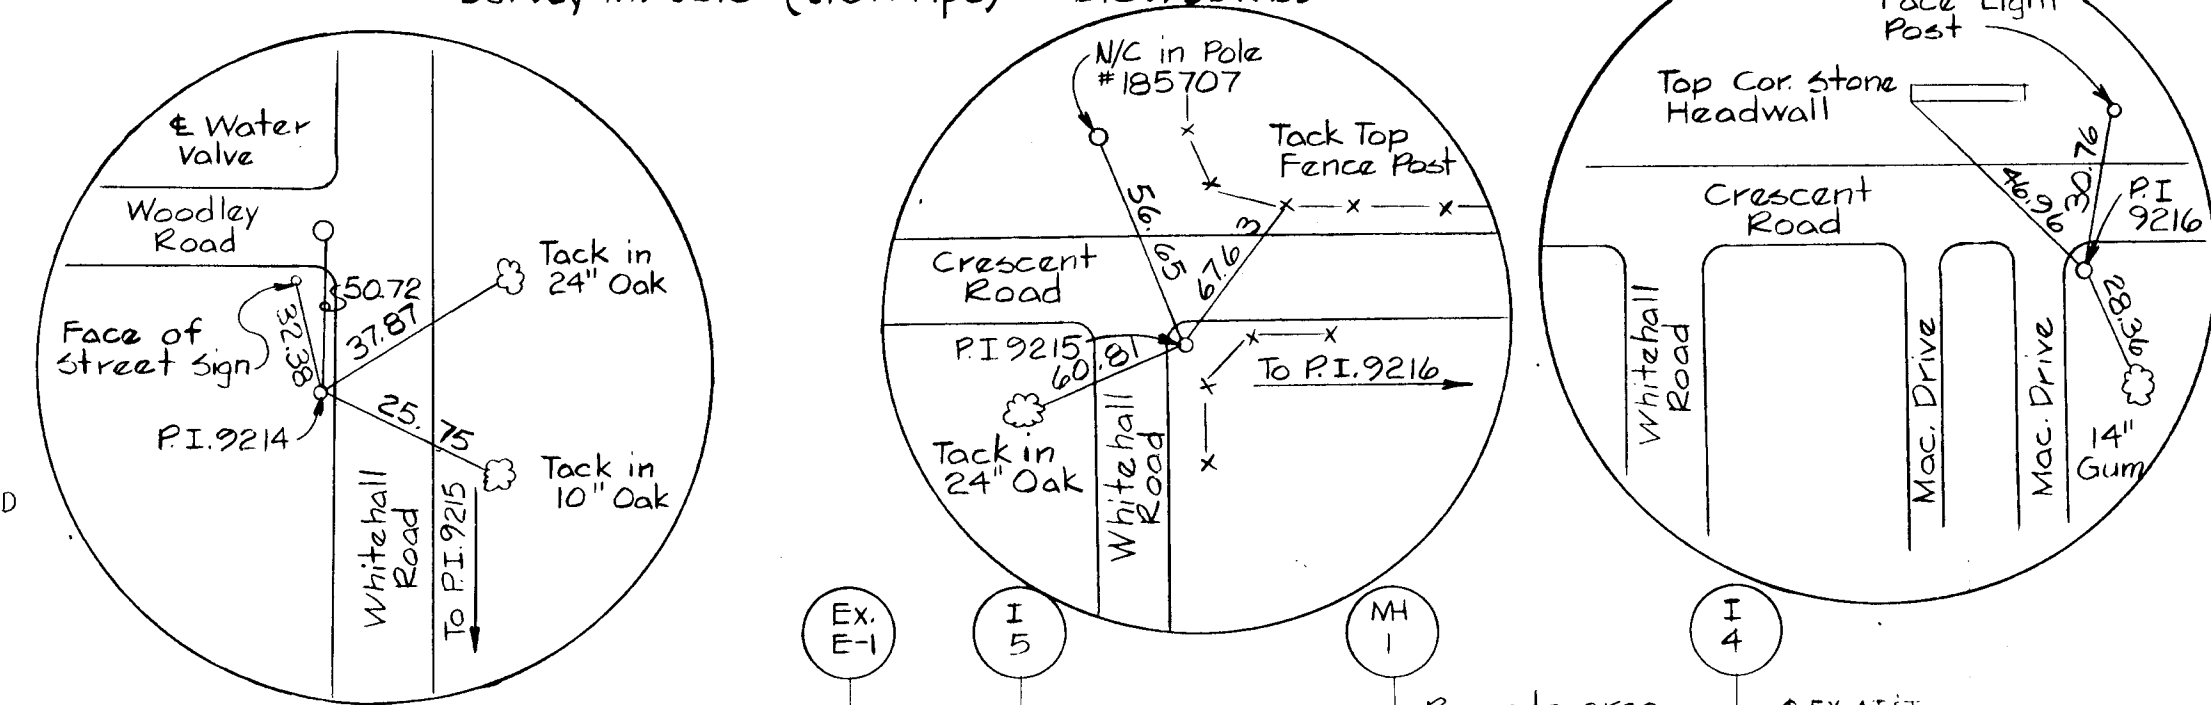 ℄ Water
Valve
Woodley
Road
50.72
37.87
32.38
Face of
Street Sign
P.I. 9214
25.75
Tack in
24" Oak
Tack in
10" Oak
Whitehall
Road
To P.I. 9215
D
N/C in Pole
#185707
Tack Top
Fence Post
56.65
67.63
Crescent
Road
P.I 9215
60.81
To P.I. 9216
Tack in
24" Oak
Whitehall
Road
Post
Top Cor. Stone
Headwall
46.96
30.76
P.I
9216
Crescent
Road
28.36
Whitehall
Road
Mac. Drive
Mac. Drive
14"
Gum
Ex.
E-1
I
5
MH
1
I
4